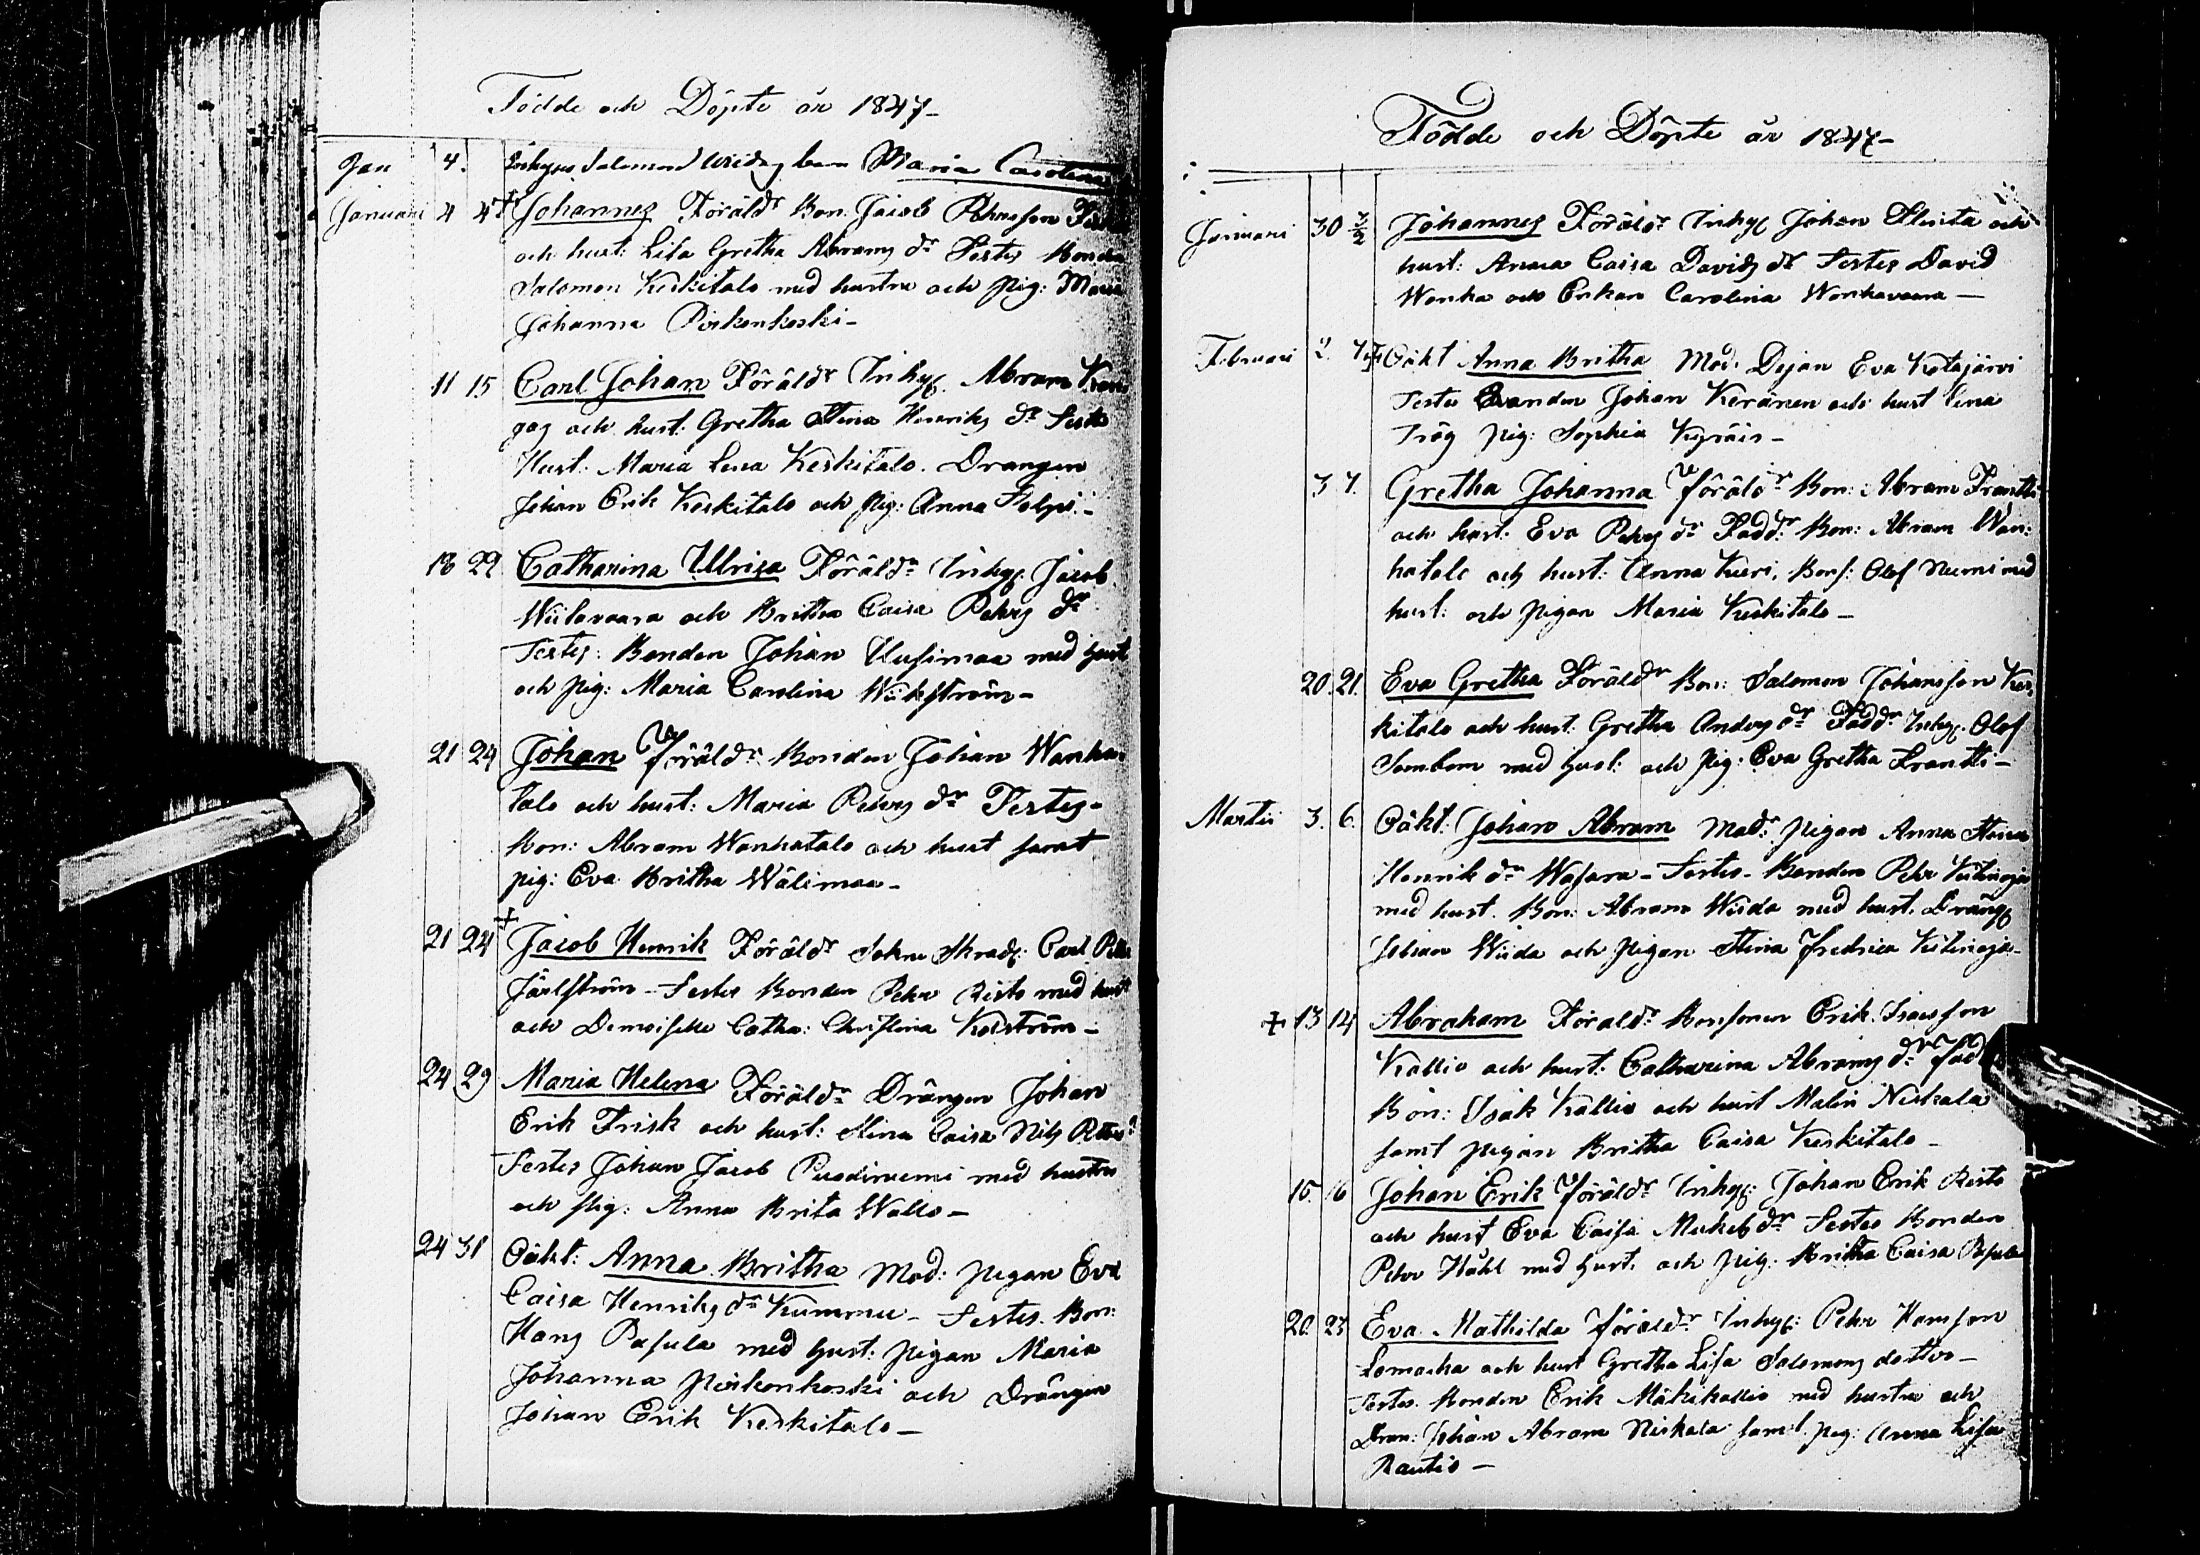 Födde och Döpte år 1847-
Jan 4. Inhyses Salomon barn Maria Carolina
Januari 4 4 + Johannes Föräldr Bon. Jacob Pehrsson
och hust: Lisa Gretha Abrams dr Testes Bonden
Salomon Keskitalo med hustru och Pig: Maria
Johanna Pirkonkoski-
11 15 Carl Johan Föräldr Inhys. Abram
gas och hust: Gretha Stina Henriks dr Testes
Hust: Maria Lena Keskitalo. Drangen
Johan Erik Keskitalo och Pig: Anna
18 22 Catharina Ulrica Föräldr Inhys: Jacob
Wiilovaara och Britha Caisa Pehrs dr
Testes: Bonden Johan Uusimaa med hust
och pig: Maria Carolina Wikström-
21 24 Johan Föräldr Bonden Johan Wanha-
talo och hust: Maria Pehrs dr Testes-
Bon: Abram Wanhatalo och hust samt
pig: Eva Britha Wälimaa-
21 24 + Jacob Henrik Föräldr Sokne Skradd: Carl
Järlström - Testes Bonden Pehr Risto med hust
och Demoiselle Catha: Christina
24 29 Maria Helena Föräldr Drängen Johan
Erik Frisk och hust: Stina Caisa Nils
Testes Johan Jacob Puodiniemi med hustru
och Pig: Anna Brita Wallo-
24 31 Oäkt: Anna Britha Mod: pigan Eva
Caisa Henriks dr Kummu- Testes. Bon:
Hans Pasula med hust: pigan Maria
Johanna Pirkonkoski och Drängen
Johan Erik Keskitalo-
Födde och Döpte år 1847-
Januari 30 7/2 Johannes Föräldr Inhys Johan och
hust: Anna Caisa Davids dr Testes David
Wonka och Enkan Carolina Wonkavaara-
Februari 2. 7 + Oäkt Anna Britha Mod: Dejan Eva Kotajärvi
Testes Bonden Johan Keränen och hust Lena
pig: Sophia
3 7. Gretha Johanna föräldr Bon: Abram Frantti
och hust: Eva Pehrs dr Fadd: Bon: Abram Wan-
hatalo och hust: Anna Bons: Olof Niemi med
hust: och pigan Maria Keskitalo-
20. 21. Eva Gretha Föräldr Bon: Salomon Johansson Kes-
kitalo och hust: Gretha Anders dr Fadd: Inhys. Olof
med hust: och pig: Eva Gretha Frantti-
Martii 3. 6. Oäkt: Johan Abram Mod: pigan Anna Stina
Henrik dr Wasara- Testes- Bonden Pehr
med hust. Bon: Abram Wiida med hust. Dräng
Johan Wiida och pigan Stina Fredrica
+ 13 14 Abraham Föräldr Bonsonen Erik Isacsson
Kallio och hust: Catharina Abrams dr fadd
Bon: Isak Kallio och hust Malin Niskala
samt pigan Britha Caisa Keskitalo-
15. 16 Johan Erik föräldr Inhys: Johan Erik Risto
och hust Eva Caisa Mickels dr Testes Bonden
Pehr Håhl med hust. och pig: Britha Caisa Pasula
20. 23 Eva Mathilda föräldr Inhys: Pehr Hansson
Lomacka och hust Gretha Lisa Salomons dotter-
Testes. Bonden Erik Mäkikallio med hustru och
Dran: Johan Abram Niskala samt pig: Anna Lisa
Rautio-